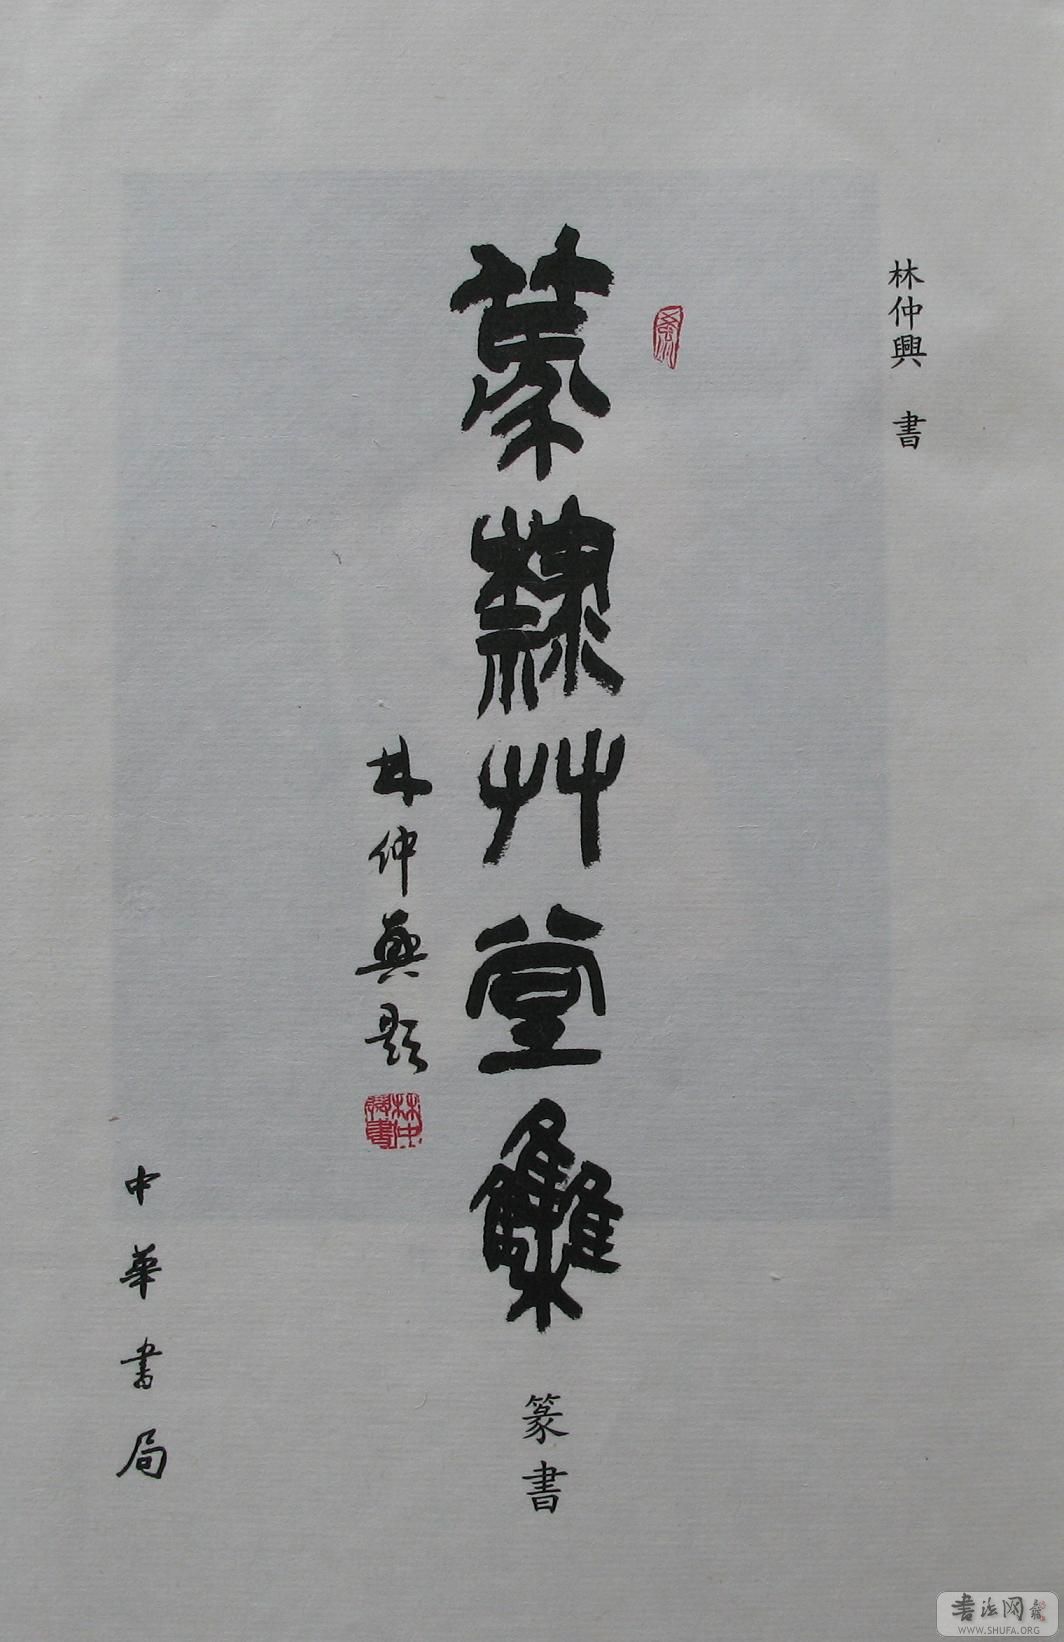 林仲興 書
篆隸艸堂雧
篆書
林仲興題
林仲興書
中華書局
書法网
WWW.SHUFA.ORG